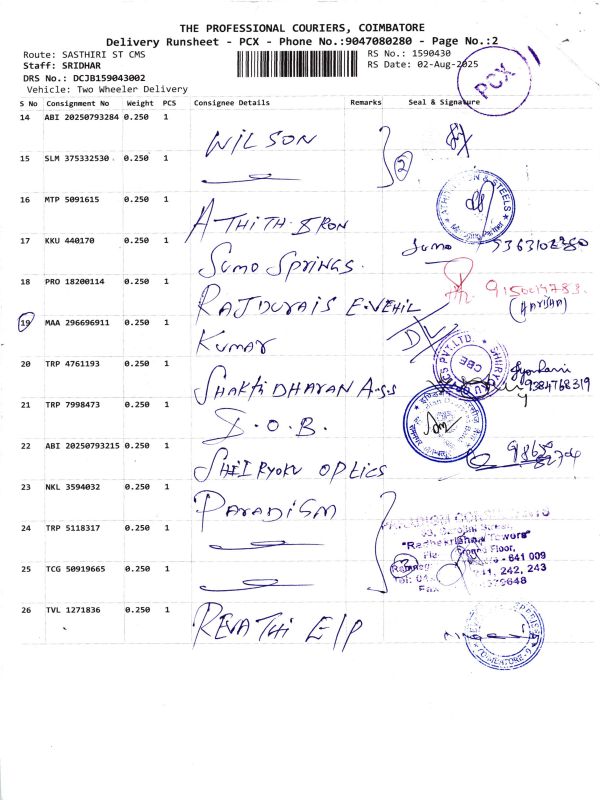 THE PROFESSIONAL COURIERS, COIMBATORE
Delivery Runsheet - PCX - Phone No.:9047080280 - Page No.:2
Route: SASTHIRI ST CMS
RS No.: 1590430
Staff: SRIDHAR
RS Date: 02-Aug-2025
DRS No.: DCJB159043002
Vehicle: Two Wheeler Delivery
PCX
S No Consignment No Weight PCS Consignee Details Remarks Seal & Signature
14 ABI 20250793284 0.250 1 WILSON
15 SLM 375332530 0.250 1
2
16 MTP 5091615 0.250 1 ATHITH IRON
17 KKU 440170 0.250 1 SUMO SPRINGS. Sumo
18 PRO 18200114 0.250 1 RAJDURAIS E.VEHIL
19 MAA 296696911 0.250 1 KUMAR
20 TRP 4761193 0.250 1 SHAKTHI DHARAN A.S.S
9384768319
21 TRP 7998473 0.250 1 I.O.B.
22 ABI 20250793215 0.250 1 SHEIRYOKU OPTICS
23 NKL 3594032 0.250 1 PARADIGM
24 TRP 5118317 0.250 1
"Radhakrishna Towers"
Ground Floor,
25 TCG 50919665 0.250 1
641 009
241, 242, 243
Fax
26 TVL 1271836 0.250 1 REVATHI E/P